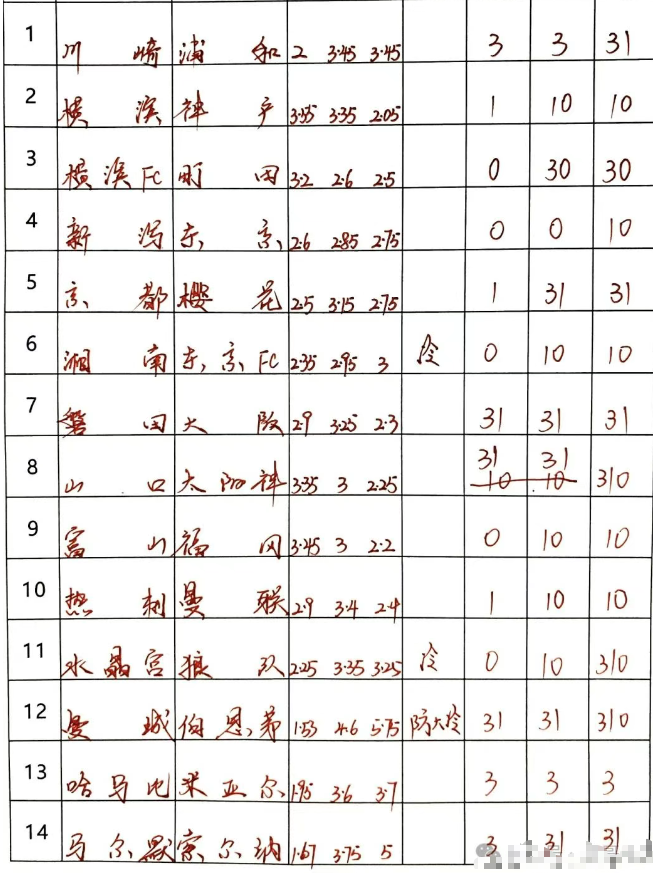 1 川崎 浦和 2 3.45 3.45 3 3 31
2 横滨 神户 3.55 3.35 2.05 1 10 10
3 横滨FC 町田 3.2 2.6 2.5 0 30 30
4 新泻 东京 2.6 2.85 2.75 0 0 10
5 京都 樱花 2.5 3.15 2.75 1 31 31
6 湘南 东京FC 2.35 2.95 3 冷 0 10 10
7 磐田 大阪 2.9 3.25 2.3 31 31 31
8 山口 太阳神 3.35 3 2.25 31 31 310
10 10
9 富山 福冈 3.45 3 2.2 0 10 10
10 热刺 曼联 2.9 3.4 2.4 1 10 10
11 水晶宫 狼队 2.25 3.35 3.25 冷 0 10 310
12 曼城 伯恩茅 1.53 4.6 5.75 防大冷 31 31 310
13 哈马比 米亚尔 1.95 3.6 3.7 3 3 3
14 马尔默 索尔纳 1.67 3.75 5 3 31 31